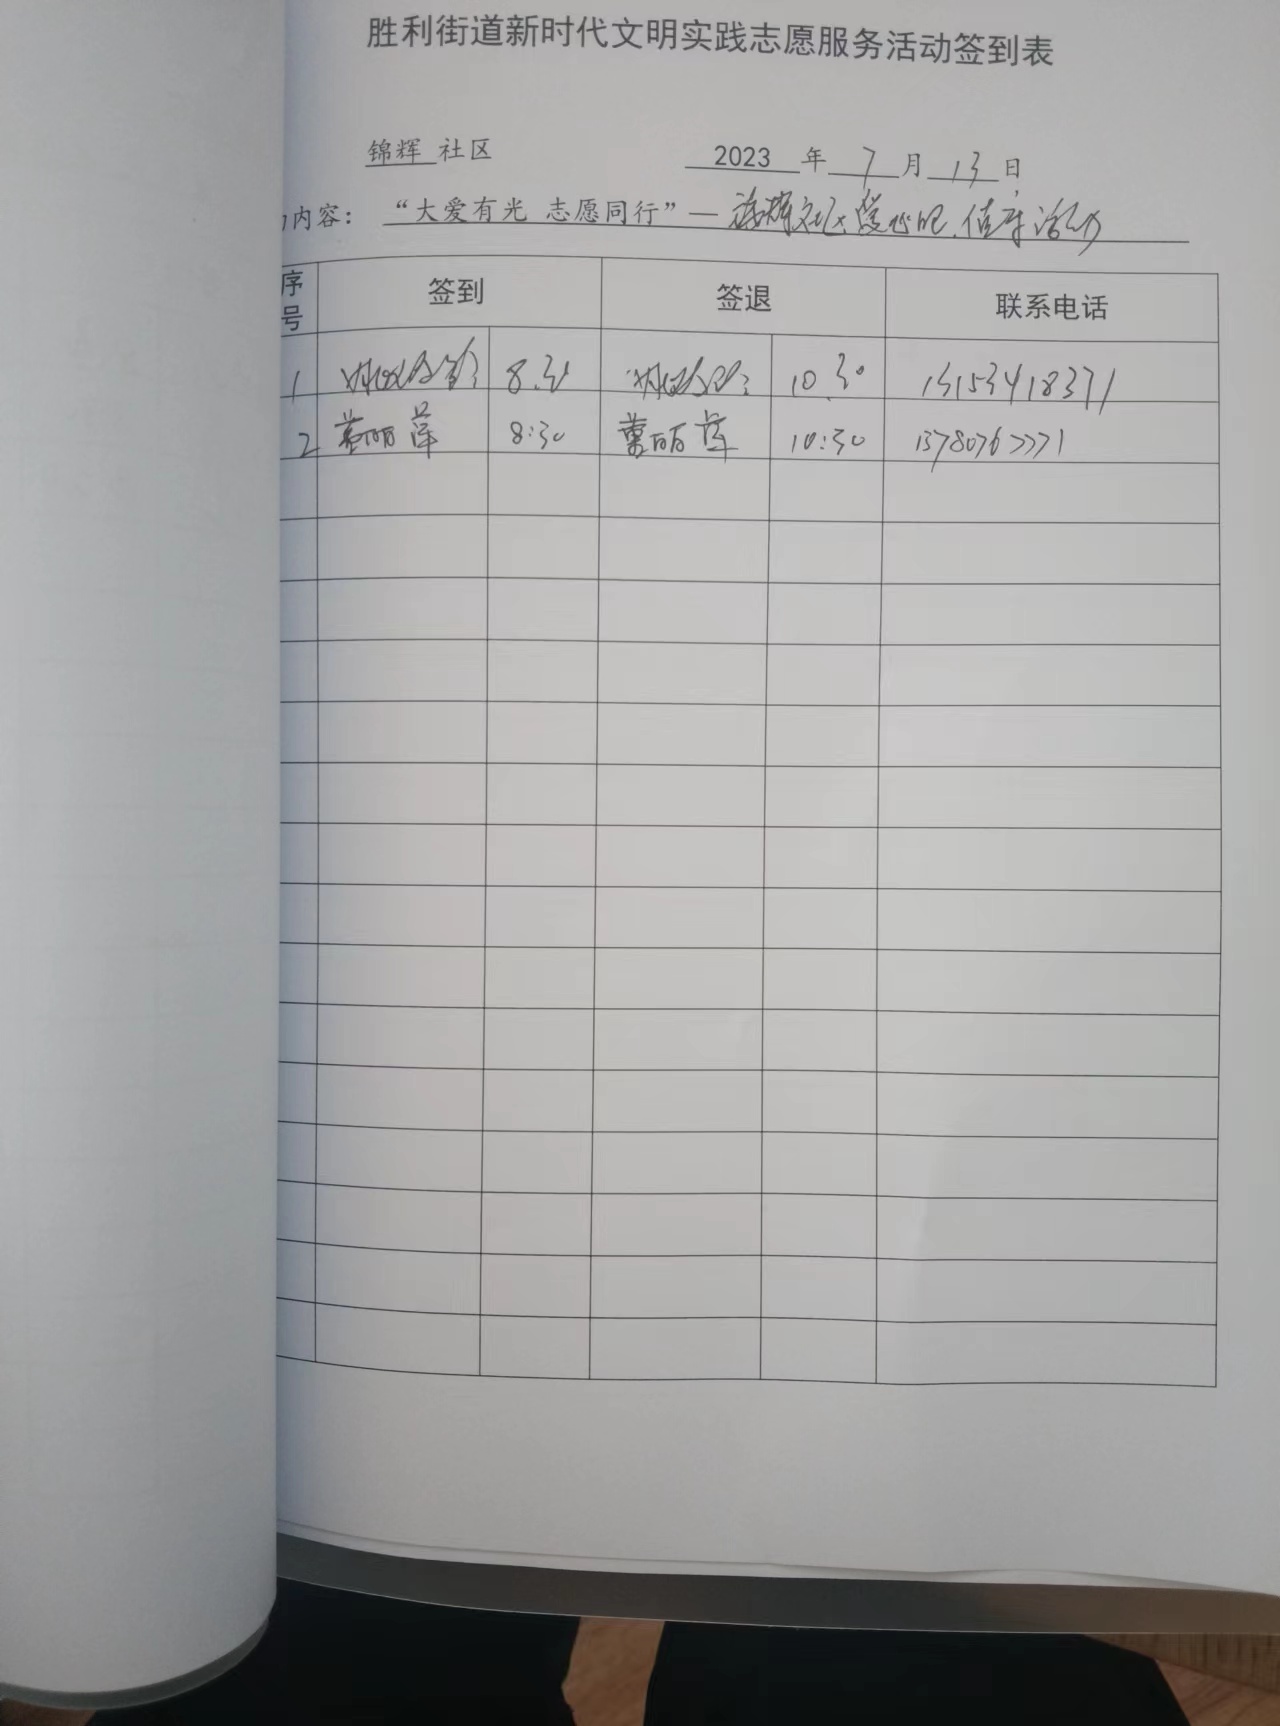 胜利街道新时代文明实践志愿服务活动签到表
锦辉 社区 2023 年 7 月 13 日
内容： “大爱有光 志愿同行”— 锦辉社区爱心吧 值守活动
序号 签到 签退 联系电话
1 8:30 10:30 13153418371
2 8:30 10:30